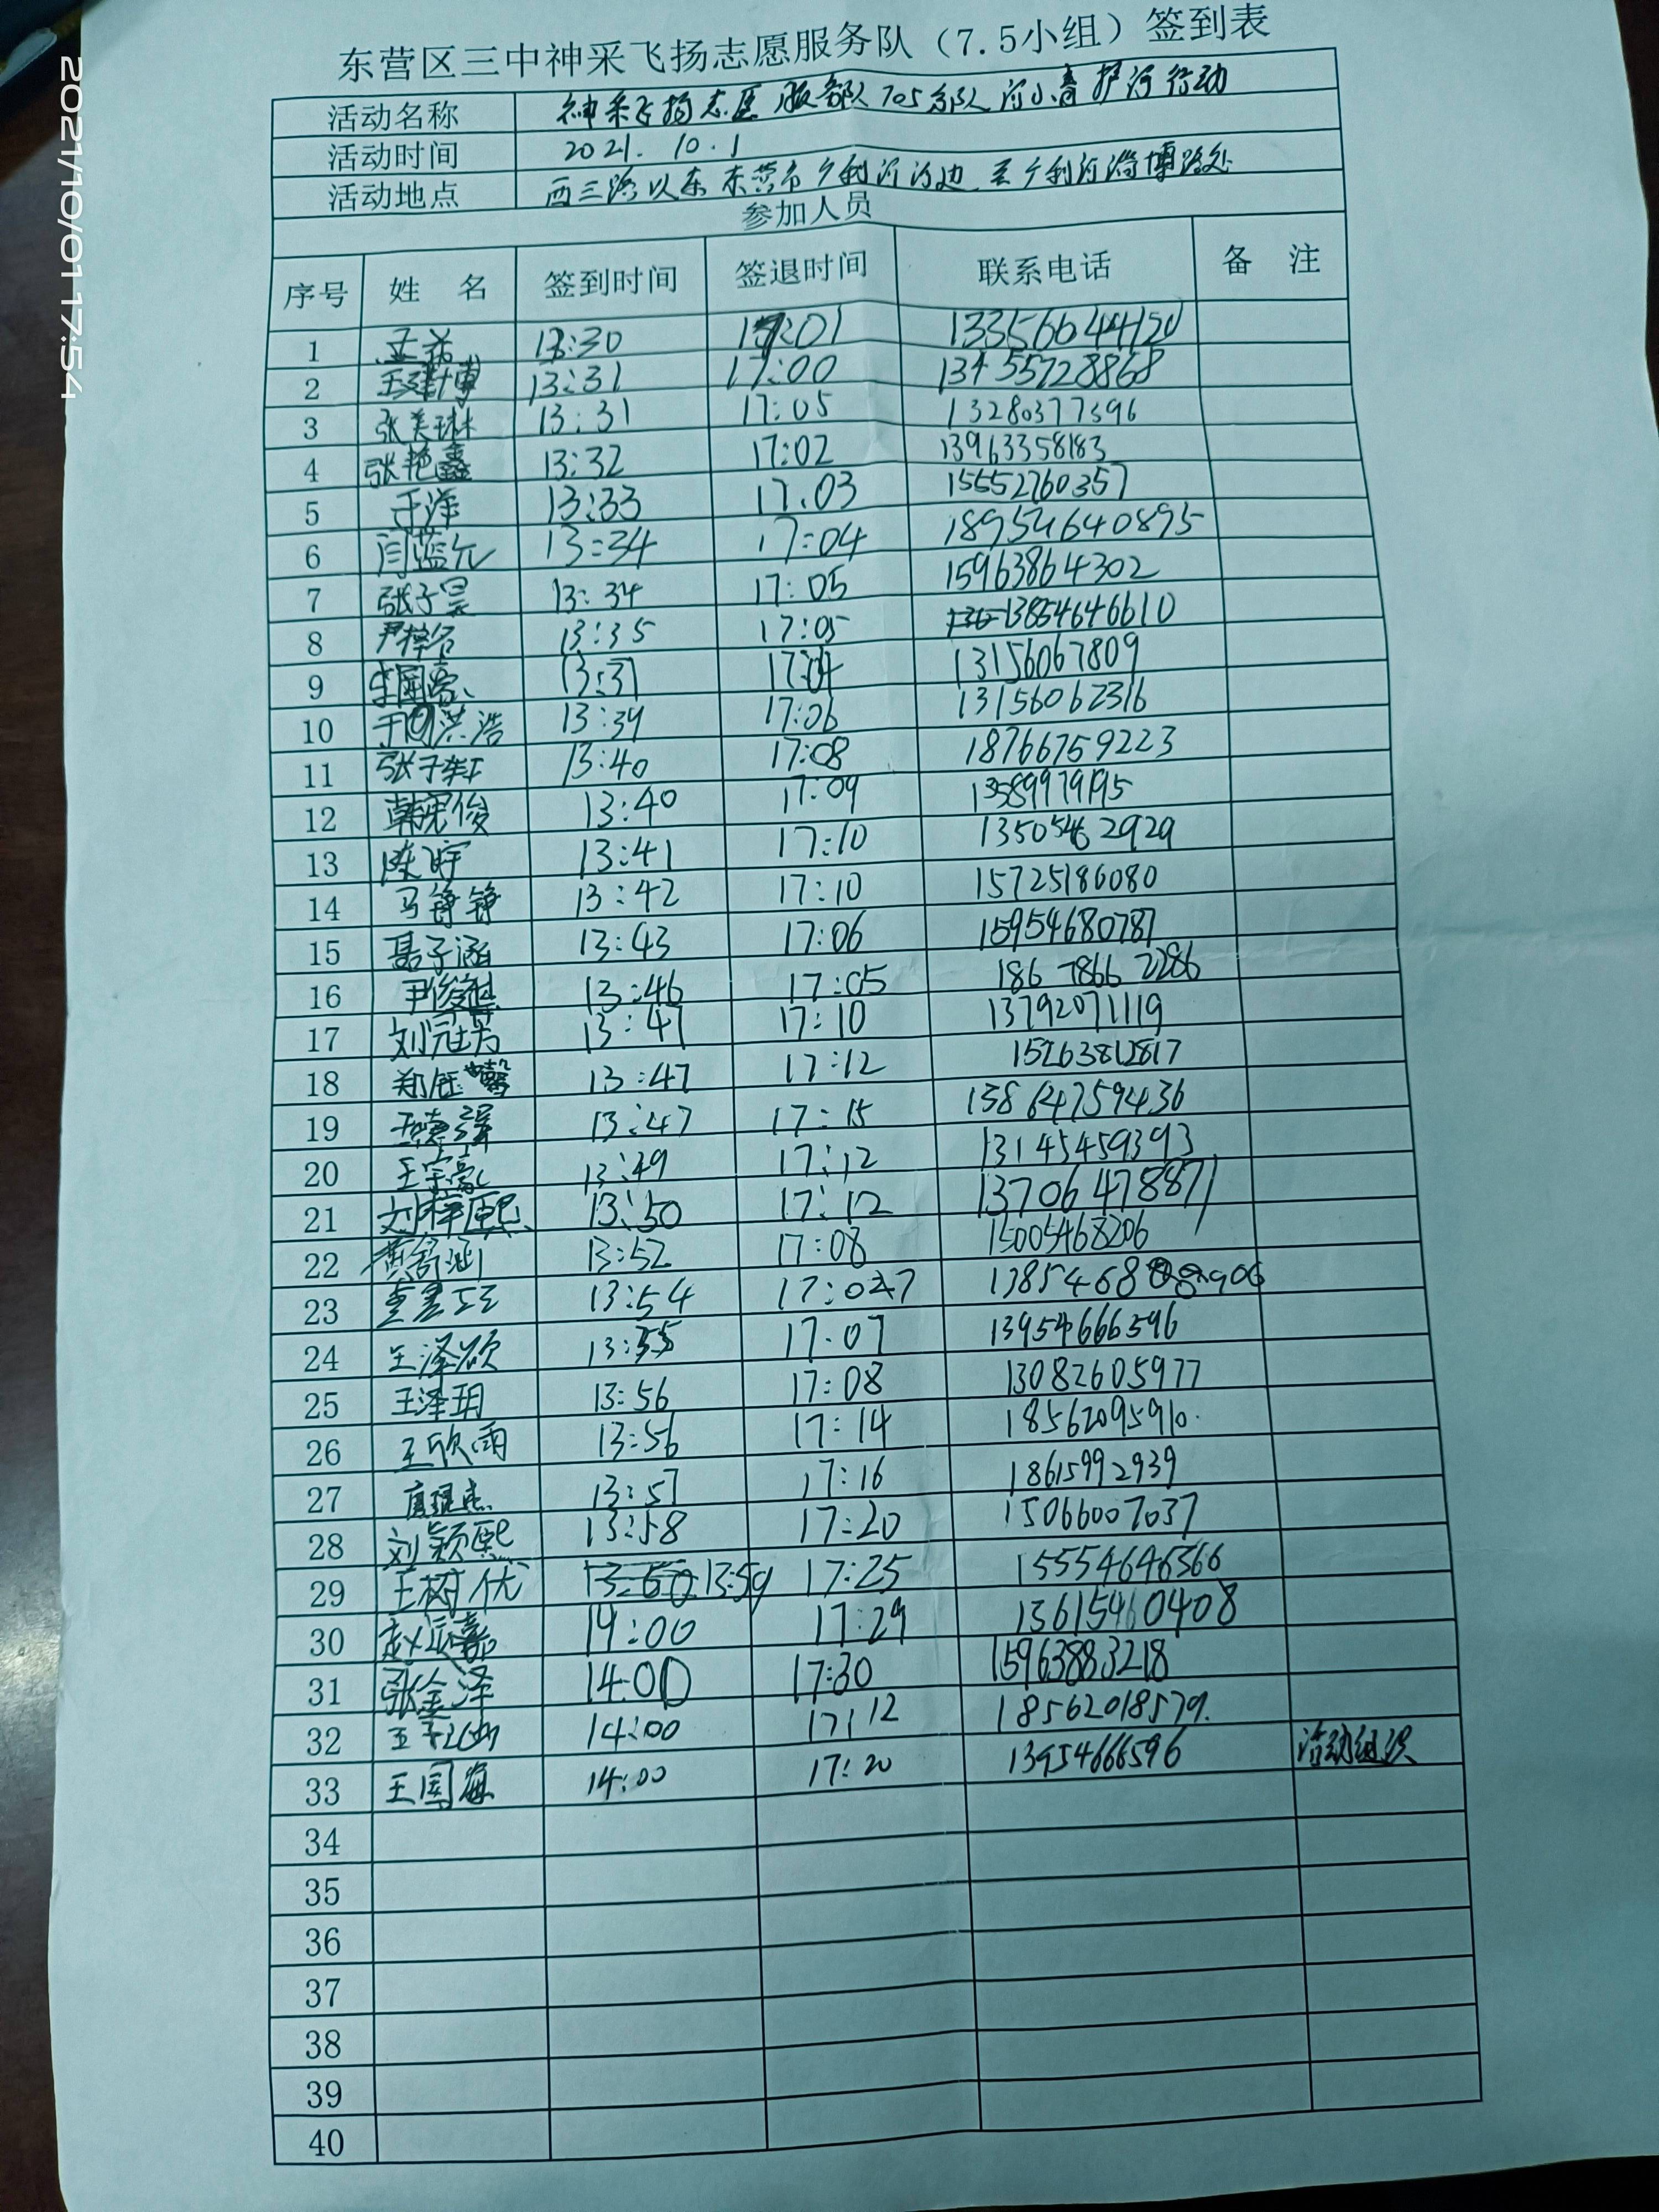 2021/10/01 17:54
东营区三中神采飞扬志愿服务队（7.5小组）签到表
活动名称 神采飞扬志愿服务队705分队河小青护河行动
活动时间 2021.10.1
活动地点 西三路以东东营市广利河河边至广利河淄博路处
参加人员
序号 姓 名 签到时间 签退时间 联系电话 备 注
1 13:30 17:01 13356644120
2 王建博 13:31 17:00 13455728868
3 张美琳 13:31 17:05 13280377396
4 张艳鑫 13:32 17:02 13963358183
5 于洋 13:33 17.03 15552760357
6 闫蓝允 13:34 17:04 18954640895
7 张子昊 13:34 17:05 15963864302
8 尹梓名 13:35 17:05 13854646610
9 李国豪 13:37 17:04 13156067809
10 于洪浩 13:39 17:06 13156062316
11 张子虹 13:40 17:08 18766759223
12 韩俊 13:40 17:09 13589979195
13 陈宇 13:41 17:10 13505462929
14 马铮铮 13:42 17:10 15725186080
15 聂子涵 13:43 17:06 15954680787
16 尹俊 13:46 17:05 186 7866 2286
17 刘冠 13:47 17:10 13792071119
18 郑钰馨 13:47 17:12 15263812817
19 王德强 13:47 17:15 13864759436
20 王宇豪 13:49 17:12 13145459393
21 刘梓熙 13:50 17:12 13706478871
22 黄舒涵 13:52 17:08 15005468206
23 13:54 17:07
24 王泽硕 13:55 17:07 13954666596
25 王泽玥 13:56 17:08 13082605977
26 王欣雨 13:56 17:14 18562095910.
27 13:57 17:16 18615992939
28 刘颖熙 13:58 17:20 15066007037
29 王树优 13:60 13:59 17:25 15554646366
30 赵辰嘉 14:00 17:29 13615460408
31 张金泽 14:00 17:30 15963883218
32 14:00 17:12 18562018579.
33 王国海 14:00 17:20 13954666596 活动组织
34
35
36
37
38
39
40